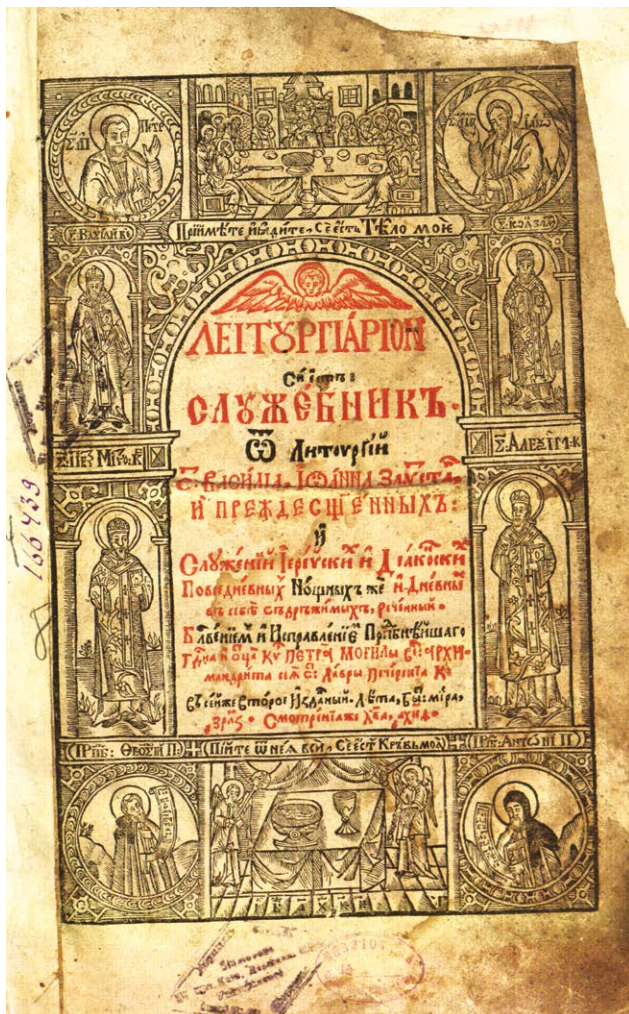 ПЕТР
Прїимѣте и ꙗдите, Се естъ Тѣло моѐ
ЛЕІТꙊРГІА́РІОН
Си́ естъ:
СЛꙊЖЕ́БНИКЪ.
Ѿ Литоургі́й
С: ВАСИ́ЛІА, ІѠА́ННА ЗЛАТꙊСТА,
И ПРЕЖДЕСЩЕ́ННЫХЪ:
И
Слꙋже́нїй Іере́йски и Дїа́конски
Повседне́вныхъ Но́щныхъ же и Дне́вны
въ себѣ съдръжи́мыхъ, рече́нный.
Бл҃ве́нїем и Исправле́нїе Прпⷣбнѣйшаго
Г҃дна и ѻц҃а Кѵ ПЕТРА МОГИ́ЛЫ архи-
мандрита сїѧ с: Ла́вры Пече́рскїѧ Кї
Въ се́йже вто́рое Изда́нный. Лѣта, Бы: ми́ра,
҂зрлз. Смотре́нїѧже Хв҃а, ҂ахкѳ.
ПРПБ: ѲЕОДОСІЙ П:
Пі́йте ѿ неѧ вси, Се ест Кръвь моѧ
ПРПБ: АНТОНІ П:
166439